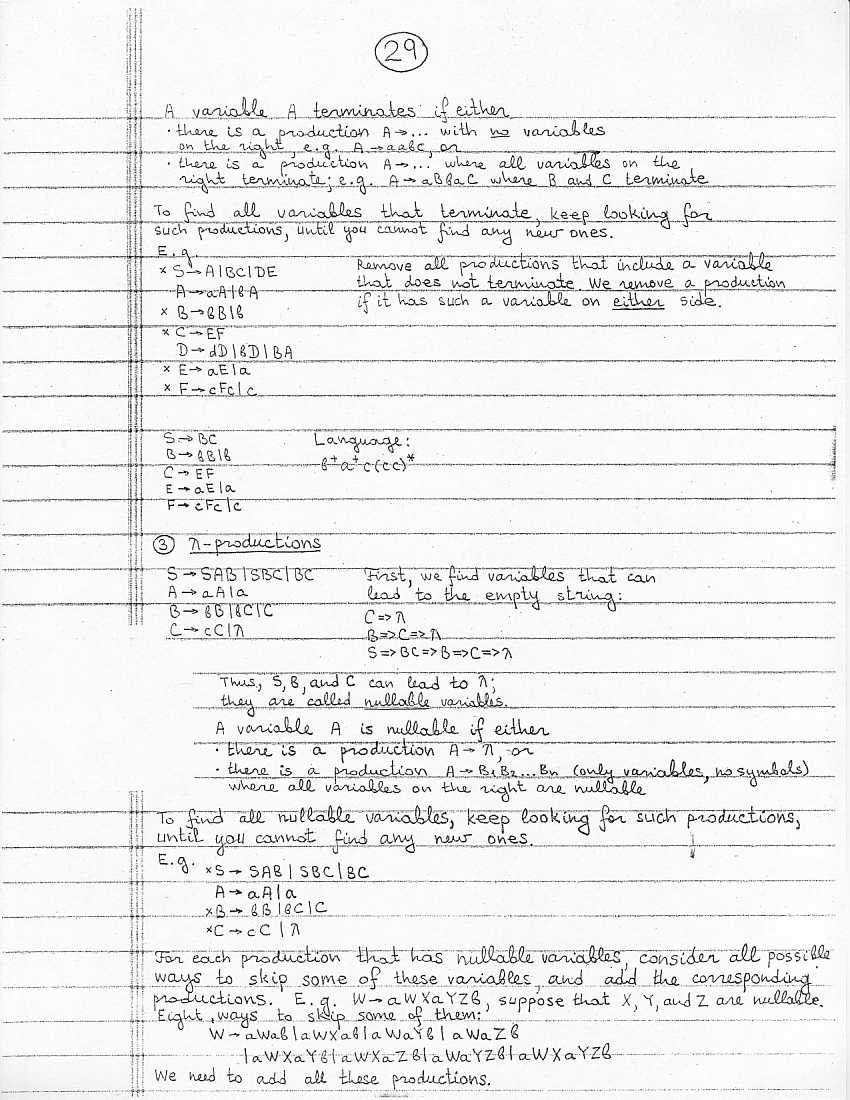 29
A variable A terminates if either
· there is a production A→... with no variables
on the right, e.g. A→aabc, or
· there is a production A→... where all variables on the
right terminate; e.g. A→aBbaC where B and C terminate
To find all variables that terminate, keep looking for
such productions, until you cannot find any new ones.
E.g.
× S→A|BC|DE
A→aA|bA
× B→bB|b
× C→EF
D→dD|bD|BA
× E→aE|a
× F→cFc|c
Remove all productions that include a variable
that does not terminate. We remove a production
if it has such a variable on either side.
S→BC
B→bB|b
C→EF
E→aE|a
F→cFc|c
Language:
b⁺a⁺c(cc)*
③ λ-productions
S→SAB|SBC|BC
A→aA|a
B→bB|bC|C
C→cC|λ
First, we find variables that can
lead to the empty string:
C=>λ
B=>C=>λ
S=>BC=>B=>C=>λ
Thus, S, B, and C can lead to λ;
they are called nullable variables.
A variable A is nullable if either
· there is a production A→λ, or
· there is a production A→B₁B₂...Bn (only variables, no symbols)
where all variables on the right are nullable
To find all nullable variables, keep looking for such productions,
until you cannot find any new ones.
E.g. ×S→SAB|SBC|BC
A→aA|a
×B→bB|bC|C
×C→cC|λ
For each production that has nullable variables, consider all possible
ways to skip some of these variables, and add the corresponding
productions. E.g. W→aWXaYZb, suppose that X, Y, and Z are nullable.
Eight ways to skip some of them:
W→aWab|aWXab|aWaYb|aWaZb
|aWXaYb|aWXaZb|aWaYZb|aWXaYZb
We need to add all these productions.